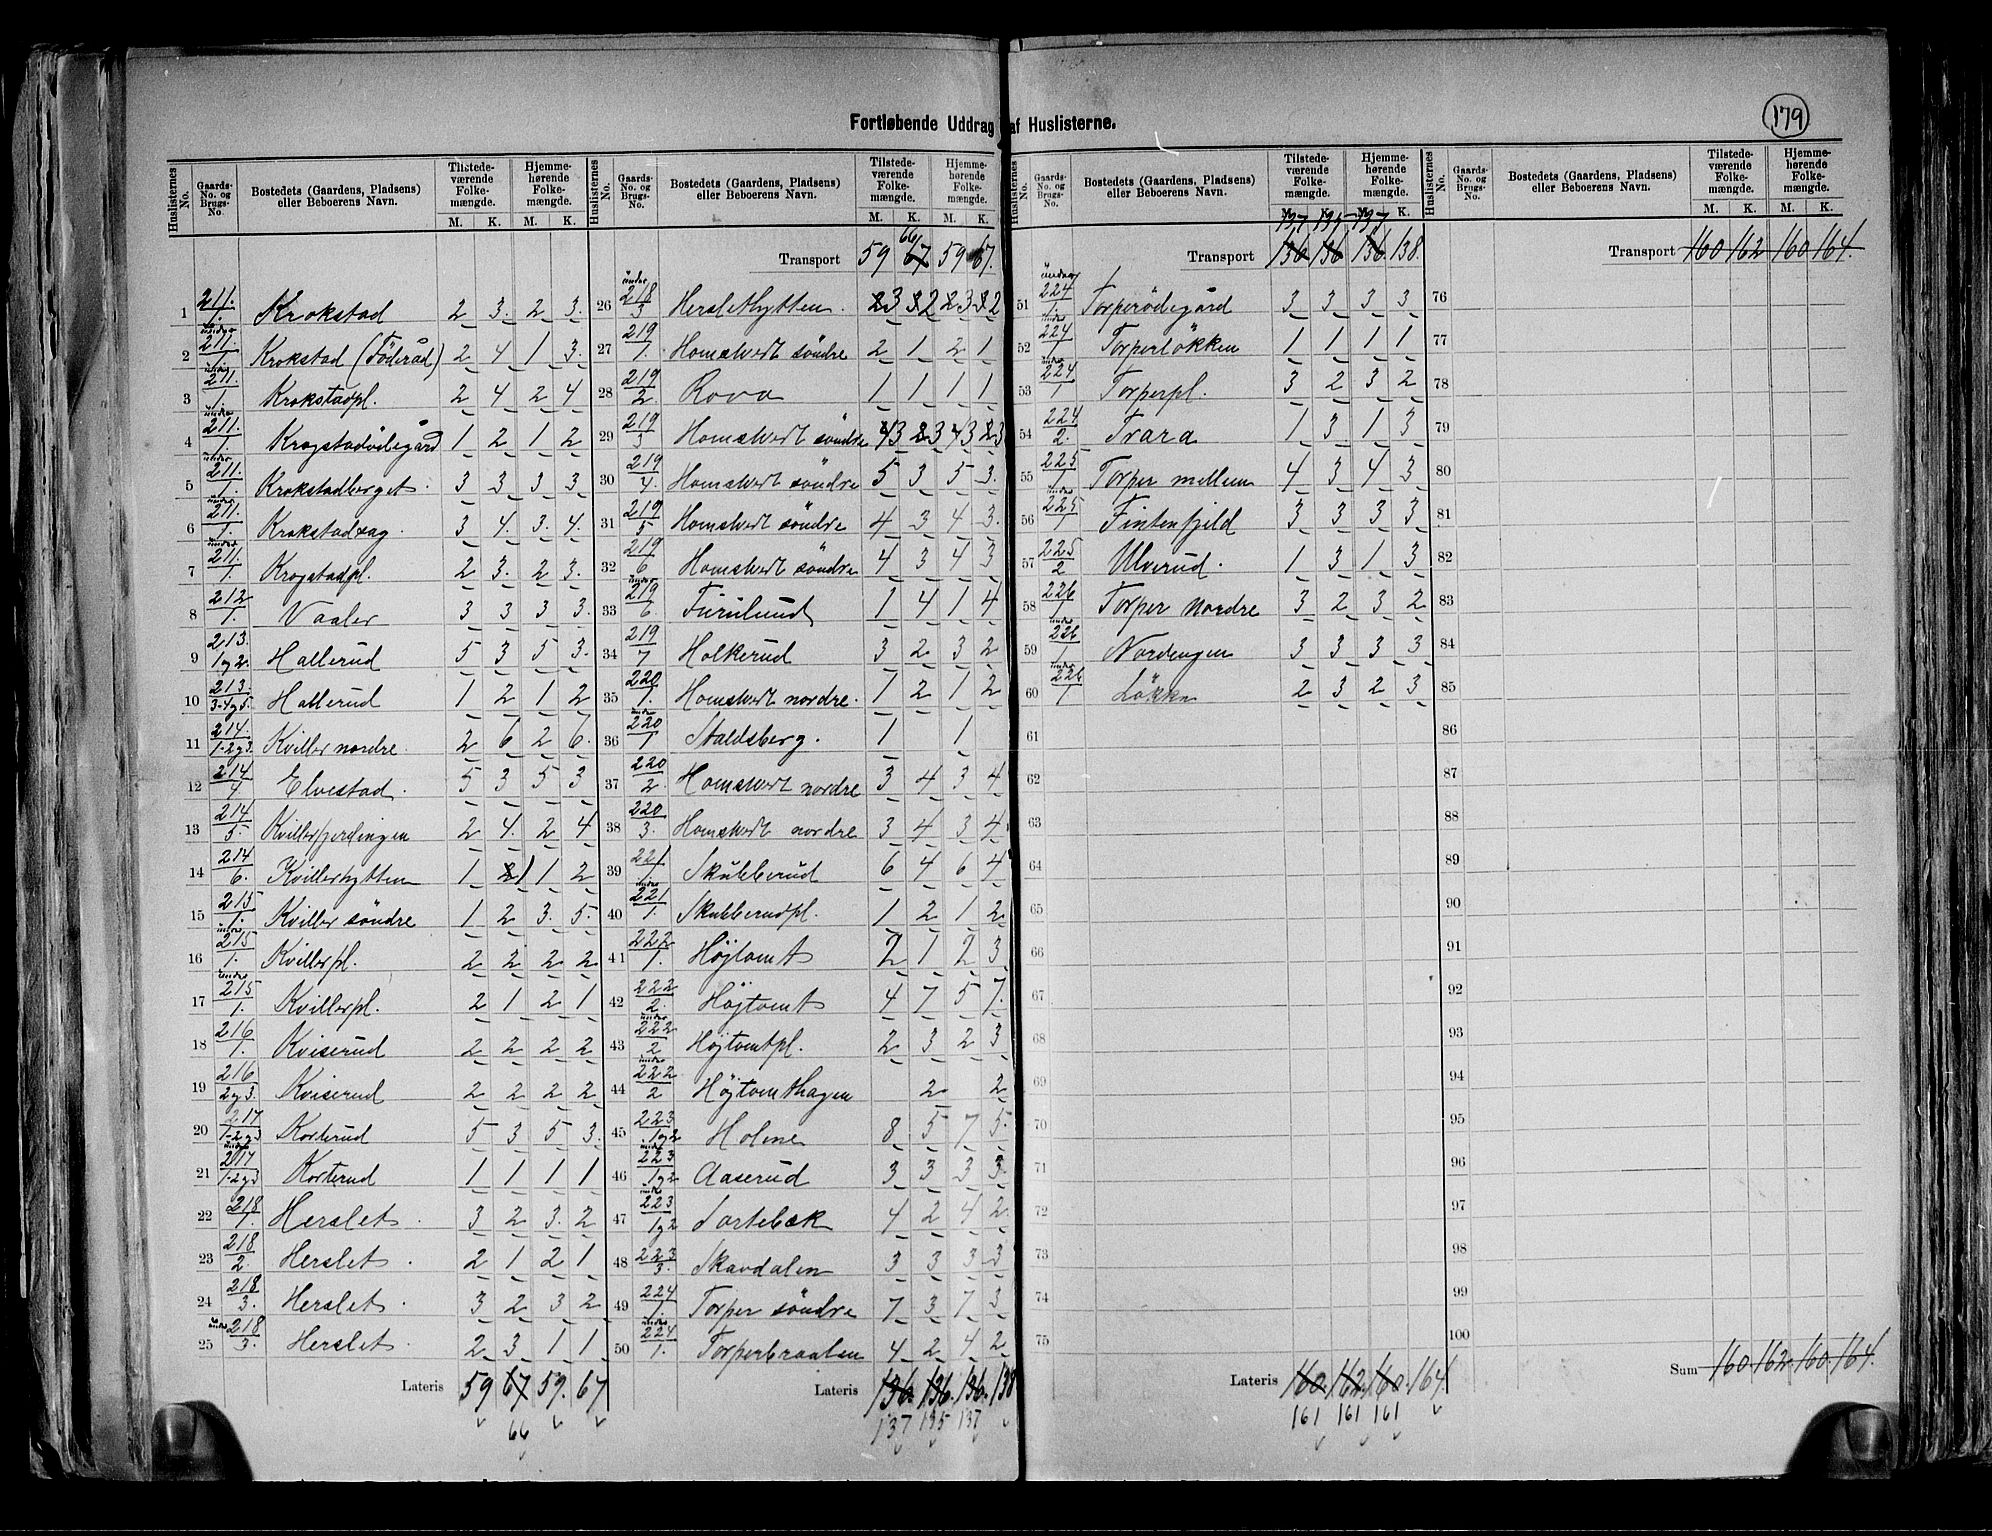 179
Fortløbende Uddrag af Huslisterne.
Huslisternes No. | Gaards-No. og Brugs-No. | Bostedets (Gaardens, Pladsens) eller Beboerens Navn. | Tilstedeværende Folkemængde. M. K. | Hjemmehørende Folkemængde. M. K.
1 211./1. Krokstad 2 3. 2 3.
2 under 211./1 Krokstad (Föderåd) 2 4 1 3.
3 under 211./1. Krokstadpl. 2 4 2 4
4 under 211./1. Krogstadödegård 1 2 1 2
5 under 211./1. Krokstadberget. 3 3 3 3
6 under 211./1. Krokstadsag. 3 4. 3. 4.
7 under 211./1. Krogstadpl. 2 3. 2 3.
8 212/1. Vaaler 3 3 3 3.
9 213./1 og 2. Hallerud 5 3 5 3.
10 213./3-4 og 5. Hallerud 1 2 1 2
11 214./1-2 og 3. Kviller nordre. 2 6 2 6.
12 214/4 Elvestad. 5 3 5 3
13 214/5. Kvillerfjerdingen 2 4. 2 4
14 214/6. Kvillerhytten 1 2 1 1 2
15 215/1. Kviller söndre 1 2 3. 5.
16 under 215/1. Kvillerpl. 2 2 2 2
17 under 215/1. Kvillerpl. 2 1 2 1
18 216/1. Kviserud 2 2 2 2
19 216/2 og 3. Kviserud 2 2 2 2
20 217/1-2 og 3 Korterud 5 3 5 3.
21 under 217/1-2 og 3 Korterud 1 1 1 1
22 218/1. Herslet. 3 2 3. 2
23 218/2. Herslet. 2 1 2 1
24 218/3. Herslet. 3 2 3 2
25 under 218/3. Herslet 2 3 1 1
Lateris 59 67 59. 67
66
Transport 59 67 59 67.
66
26 under 218/3 Herslethytten. 2 3 3 2 2 3 3 2
27 219/1. Homstvedt söndre 2 1 2 1
28 219/2 Rova 1 1 1 1
29 219/3 Homstvedt söndre 4 3 2 3 4 3 2 3
30 219/4. Homstvedt söndre 5 3 5 3.
31 219/5 Homstvedt söndre 4 3 4 3.
32 219/6 Homstvedt söndre 4 3 4 3
33 under 219/6. Furulund 1 4 1 4
34 219/7 Holkerud 3 2 3 2
35 220/1. Homstvedt nordre. 1 2 1 2
36 220/1 Staldsberg. 1 1
37 220/2. Homstvedt nordre 3 4 3 4
38 220/3. Homstvedt nordre 3 4 3 4
39 221/1. Skubberud 6 4 6 4
40 under 221/1. Skubberudpl. 1 2 1 2
41 222/1. Højtomt 2 1 2 3
42 222/2. Højtomt 4 7 5 7.
43 under 222/2 Højtomtpl. 2 3 2 3
44 under 222/2 Højtomthagen 2 2
45 223/1 og 2 Holme 8 5 7 5.
46 under 223/1 og 2 Aaserud 3 3 3 3.
47 under 223/1 og 2 Sortebæk 4 2 4 2
48 223/3. Skavdalen 3 3 3 3
49 224/1. Torper söndre 7 3 7 3
50 under 224/1. Torperbraaten 4 2 4 2
Lateris 136. 136. 136. 138
137 135 137
137 135 137
Transport 136 136 136 138.
51 under 224/1 Torperödegård 3 3 3 3
52 under 224/1 Torperløkken 1 1 1 1
53 under 224/1 Torperpl. 3 2 3 2
54 224/2. Trara 1 3 1 3
55 225/1 Torper mellem 4 3 4 3
56 under 225/1 Fintenfjeld 3 3 3 3
57 225/2 Ulverud. 1 3 1 3
58 226/1 Torper Nordre 3 2 3 2
59 under 226/1 Nordengen 3 3 3 3
60 under 226/1 Løkke 2 3 2 3
61
62
63
64
65
66
67
68
69
70
71
72
73
74
75
Lateris 160. 162. 160. 164.
161 161 161
Transport 160 162 160 164.
76
77
78
79
80
81
82
83
84
85
86
87
88
89
90
91
92
93
94
95
96
97
98
99
100
Sum 160. 162. 160. 164.